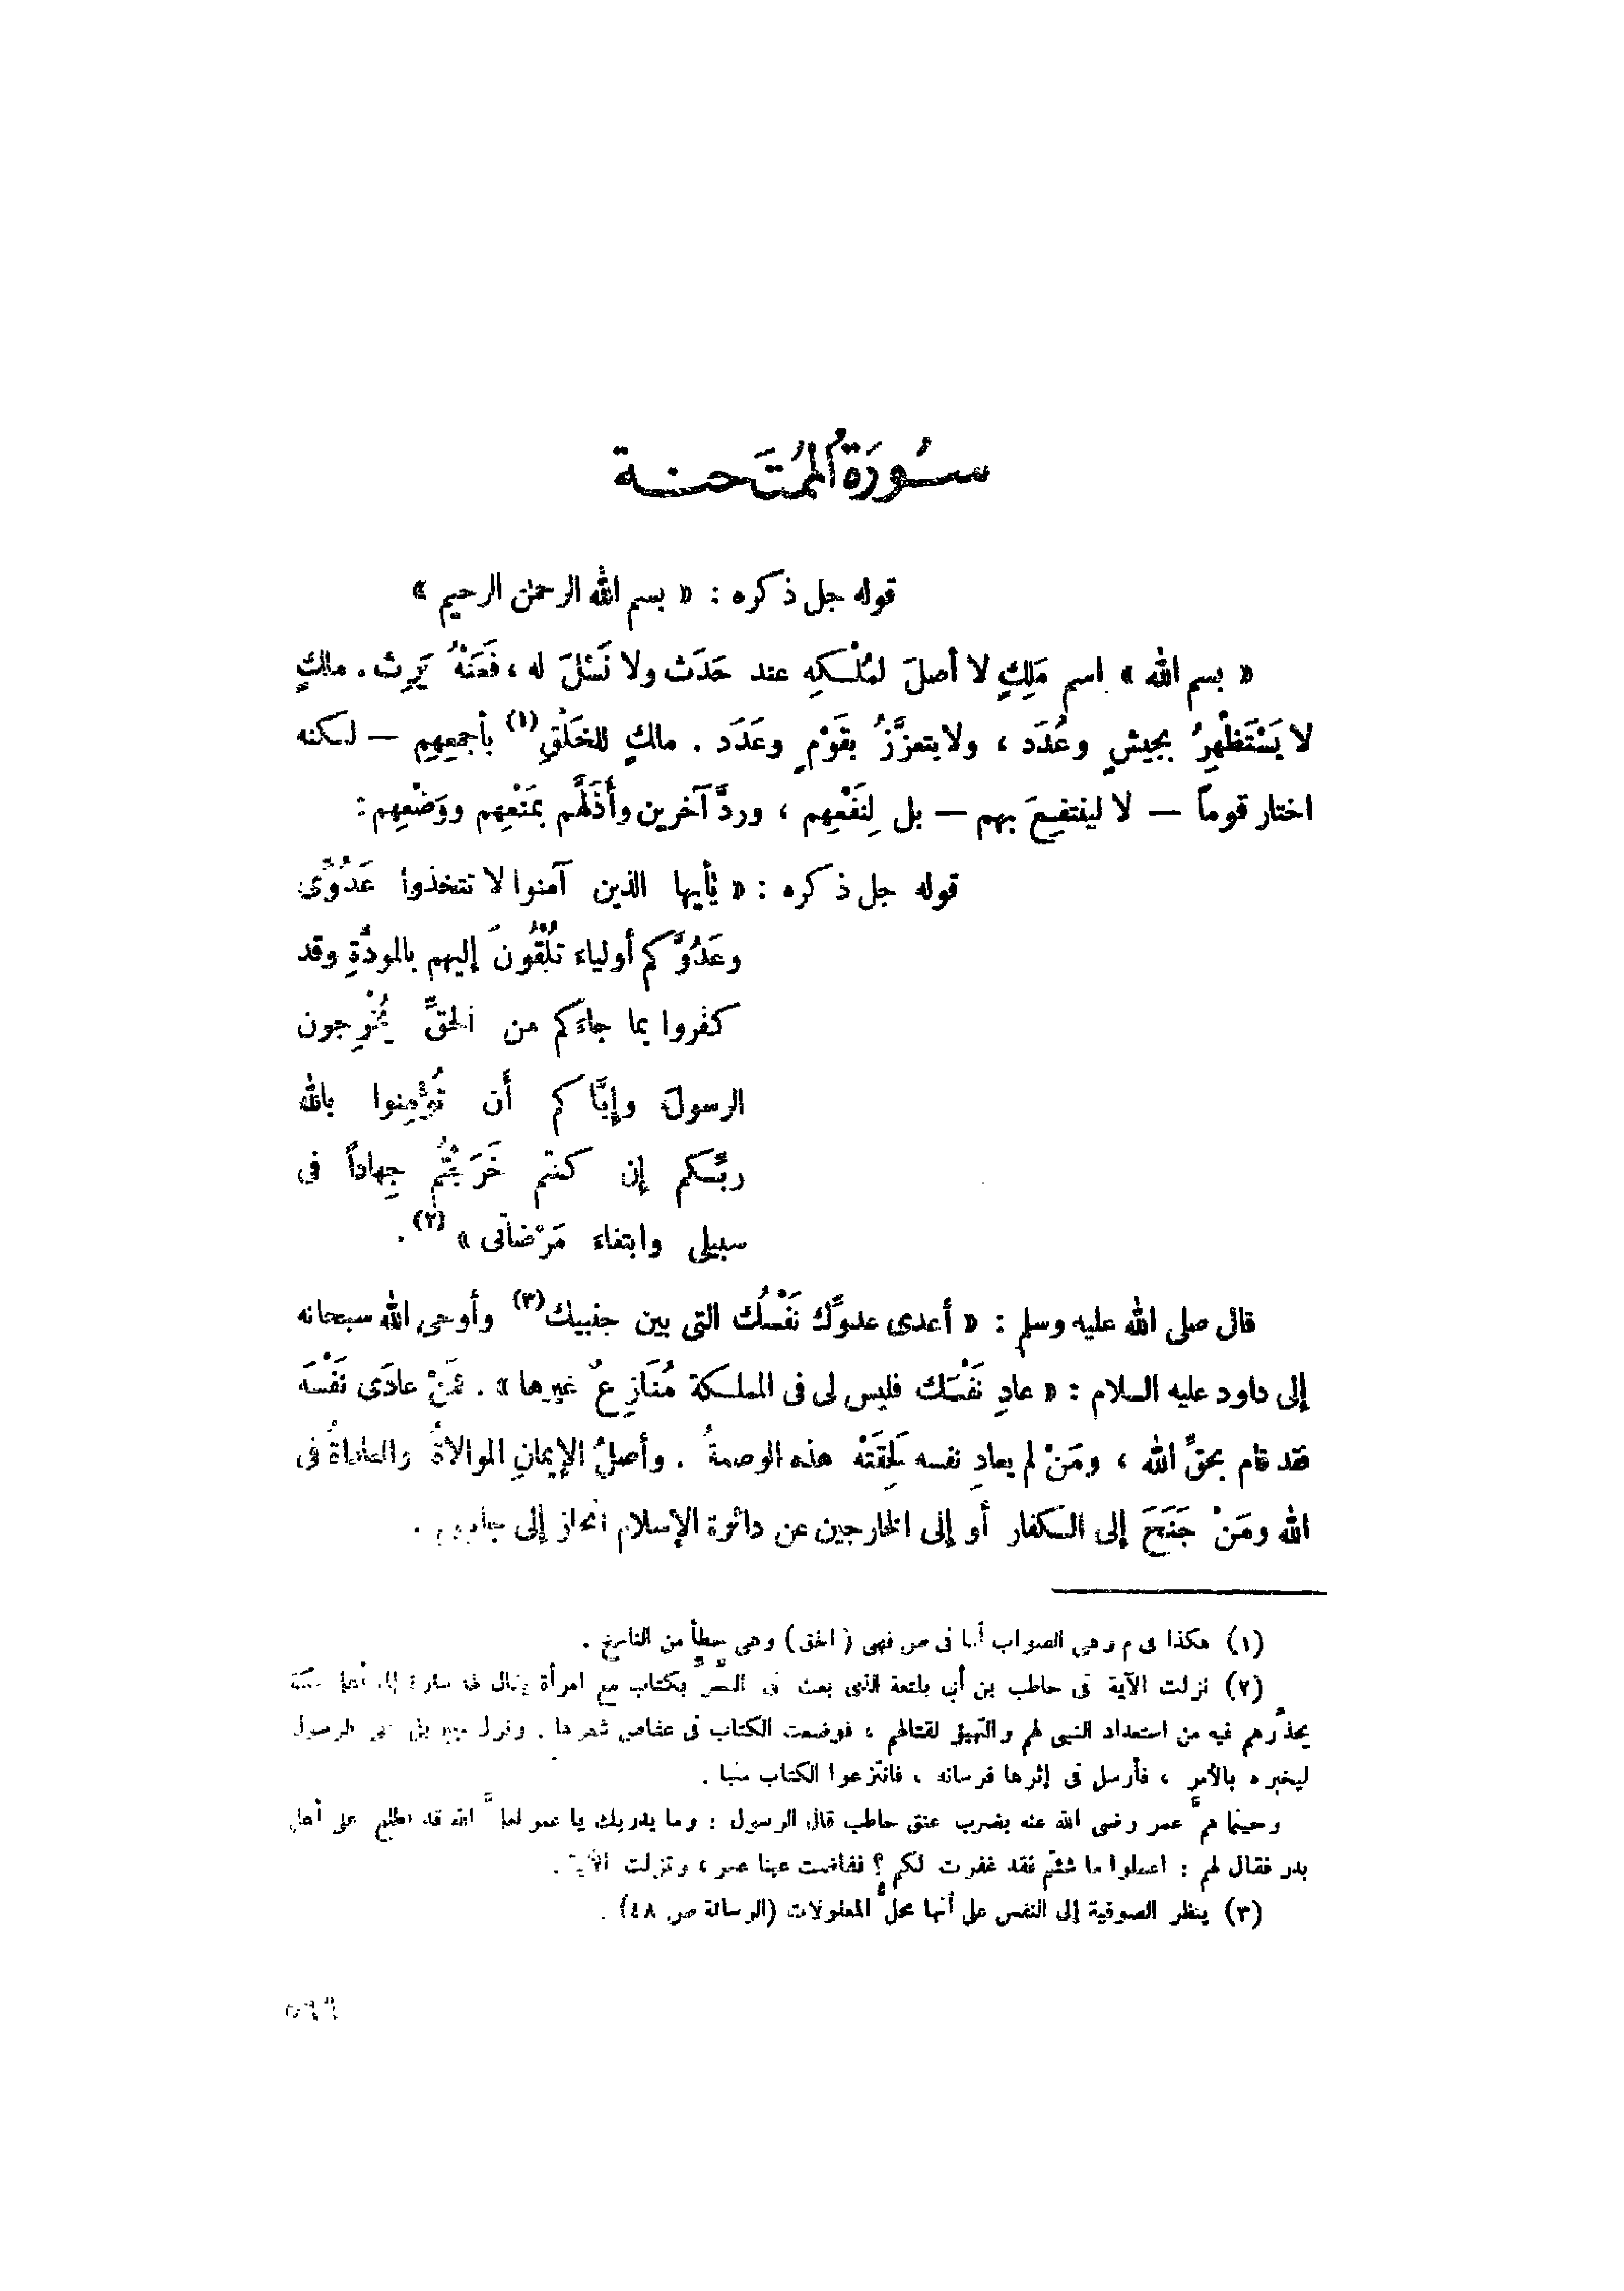 سُورَةُ المُمتَحنة
قوله جل ذكره : « بسم الله الرحمن الرحيم »
« بسم الله » اسم مَلِكٍ لا أصلَ لمُلْكِهِ عند حَدَث ولا نَسْلَ له ، فَعَنْهُ يَرِث . مالكٍ
لا يَسْتَظْهِرُ بجيشٍ وعُدَد ، ولا يتعزَّزُ بقَوْمٍ وعَدَد . مالكٍ للخَلْقِ(١) بأجمعِهِم — لكنه
اختار قوماً — لا لينتفِعَ بهم — بل لِنَفْعِهِم ، وردَّ آخرين وأَذَلَّهم بمَنْعِهِم ووَضْعِهِم :
قوله جل ذكره : « يٰأيها الذين آمنوا لا تتخذوا عَدُوِّى
وعَدُوَّكم أولياء تُلْقُونَ إليهم بالمودَّةِ وقد
كفروا بما جاءَكم من الحقِّ يُخْرِجون
الرسولَ وإيَّاكم أَن تُؤْمِنوا بالله
ربِّكم إن كنتم خَرَجْتُم جِهاداً فى
سبيلى وابتغاءَ مَرْضاتى » (٢) .
قال صلى الله عليه وسلم : « أعدى عدوِّك نَفْسُك التى بين جنبيك(٣) وأوحى الله سبحانه
إلى داود عليه السلام : « عادِ نَفْسَك فليس لى فى المملكة مُنَازِعٌ غيرها » . فمَنْ عادَى نَفْسَه
فقد قام بحقِّ الله ، ومَنْ لم يعادِ نفسه لَحِقَتْه هذه الوصمةُ . وأصلُ الإيمانِ الموالاةُ والمعاداةُ فى
الله ومَنْ جَنَحَ إلى الكفار أو إلى الخارجين عن دائرة الإسلام انحاز إلى جانبهم .
(١) هكذا فى م وهى الصواب أما فى ص فهى ( الحق ) وهى خطأ من الناسخ .
(٢) نزلت الآية فى حاطب بن أبى بلتعة الذى بعث فى السرِّ بكتاب مع امرأة يقال لها سارة إلى أهل مكة
يحذِّرهم فيه من استعداد النبى لهم والتهيؤ لقتالهم ، فوضعت الكتاب فى عقاص شعرها . ونزل جبريل على الرسول
ليخبره بالأمر ، فأرسل فى إثرها فرسانه ، فانتزعوا الكتاب منها .
وحينما همَّ عمر رضى الله عنه بضرب عنق حاطب قال الرسول : وما يدريك يا عمر لعلَّ الله قد اطلع على أهل
بدر فقال لهم : اعملوا ما شئتم فقد غفرت لكم ؟ ففاضت عينا عمر ، ونزلت الآية .
(٣) ينظر الصوفية إلى النفس على أنها محلُّ المعلولات (الرسالة ص ٤٨) .